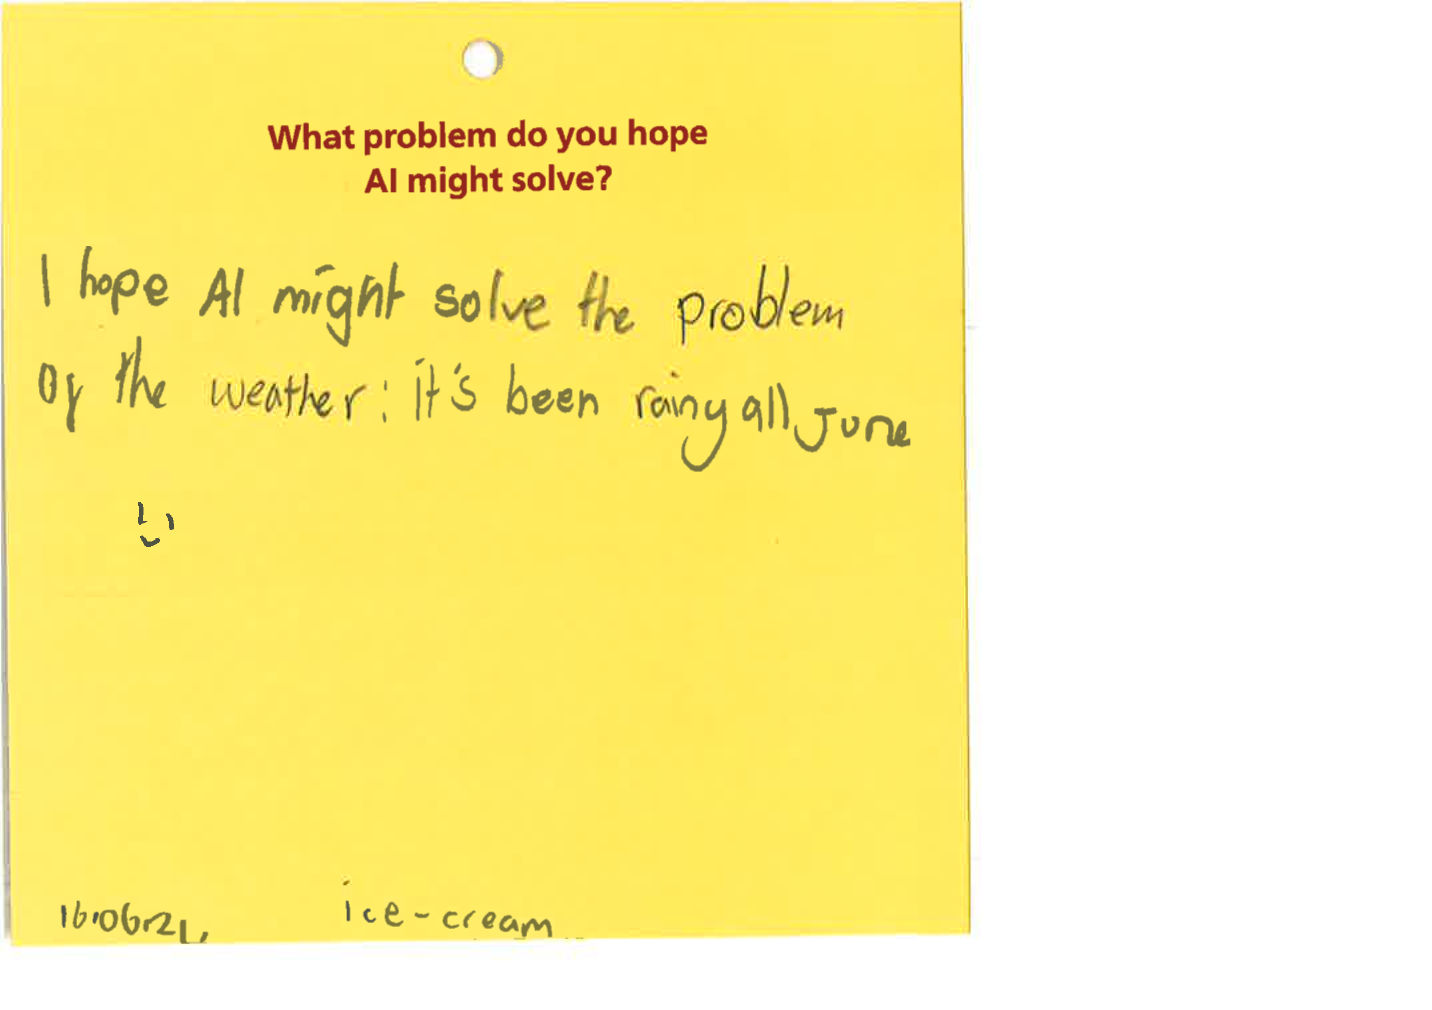 What problem do you hope
AI might solve?
I hope AI might solve the problem
of the weather: it's been rainy all June
ice-cream